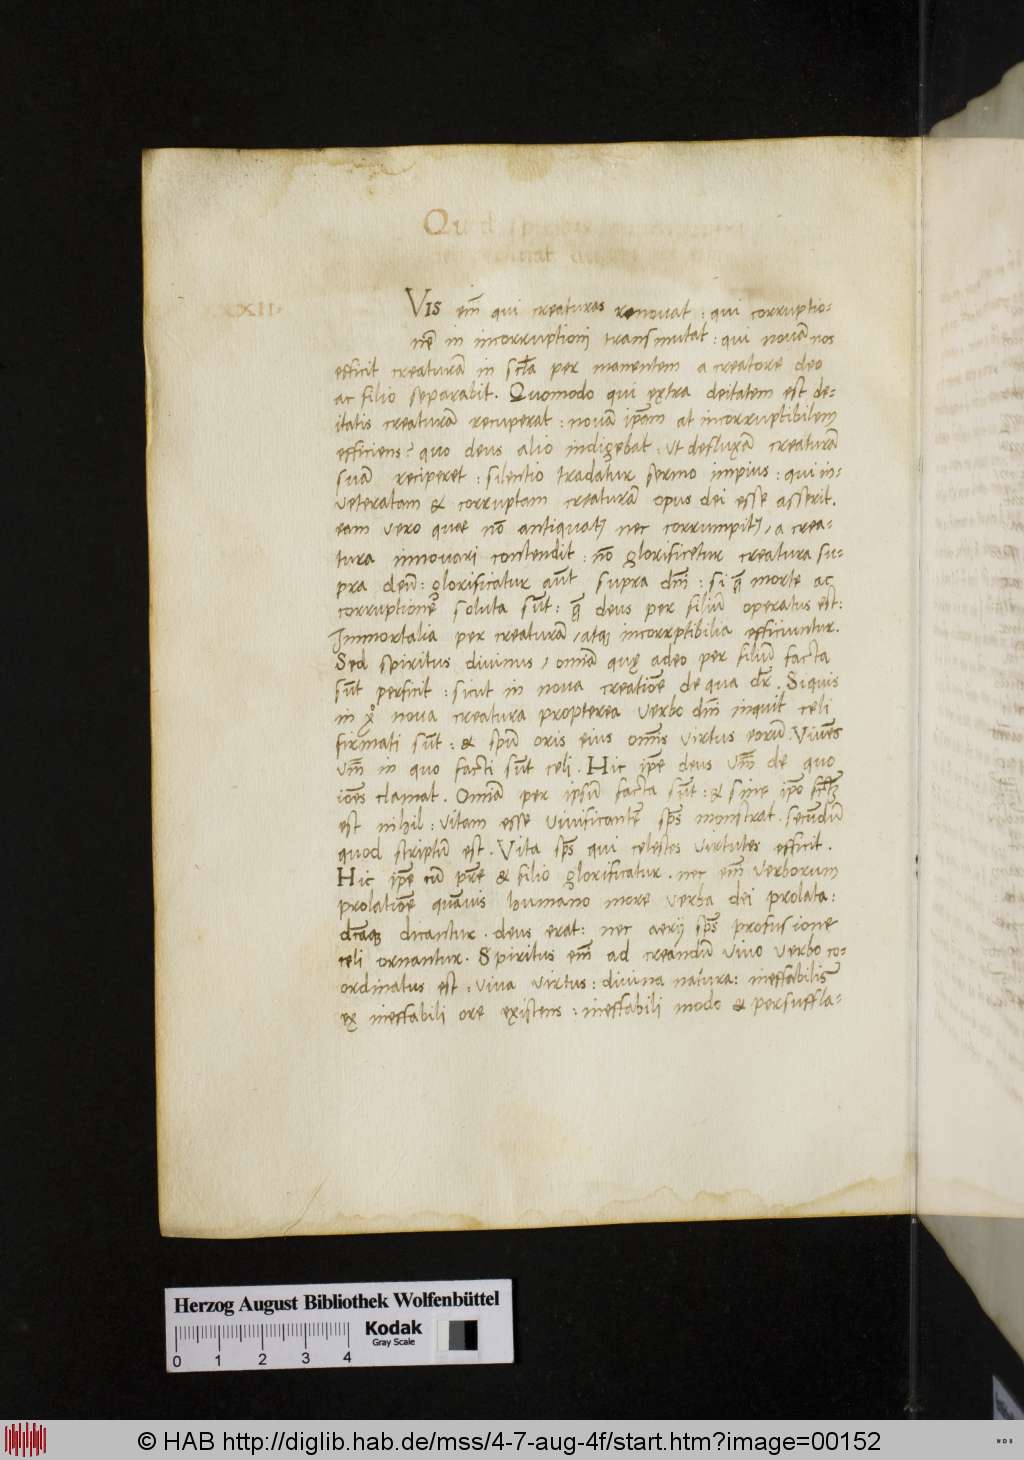 Quod spiritus
XXII.
VIS em̄ qui creaturas renovat : qui corruptio-
nē in incorruptionj transmutat : qui novam nos
efficit creaturā in scl̄a per manentem a creatore deo
ac filio separabit. Quomodo qui extra deitatem est de-
itatis creaturā recuperat : novā ip̄am at incorruptibilem
efficiens? quo deus alio indigebat : ut defluxā creaturā
suā reciperet : silentio tradatur sermo impius : qui in-
veteratam & corruptam creaturā opus dei esse asserit.
eam vero quae nō antiquatȷ nec corrumpitȷ, a crea-
tura innovari contendit : nō glorificetur creatura su-
pra deū : glorificatur aūt supra dm̄ : si q̄ morte ac
corruptionē soluta sūt : q̄ deus per filiū operatus est :
Immortalia per creaturā, atqȝ incorrptibilia efficiuntur.
Sed spiritus divinus, omīa quę adeo per filiū facta
sūt perficit : sicut in nova creatiōe de qua dr̄. Siquis
in xp̄o nova creatura propterea verbo dn̄i inquit celi
firmati sūt : & spū oris eius omīs virtus eorū. Vivēs
vnū in quo facti sūt celi. Hic ip̄e deus vn̄s de quo
iōes clamat. Omīa per ipsū facta sūt : & sine ip̄o
est nihil : vitam esse vivificantē sp̄s monstrat. secundū
quod scriptū est. Vita sp̄s qui celestes virtutes efficit.
Hic ip̄e cū pr̄e & filio glorificatur. nec em̄ verborum
prolatiōe quāuis humano more verba dei prolata :
dicantur. deus erat : nec aerij sp̄s profusione
celi ornantur. Spiritus em̄ ad creandū vivo verbo co-
ordinatus est : viva virtus : divina natura : ineffabilis
ex ineffabili ore existens : ineffabili modo & persuffla-
Herzog August Bibliothek Wolfenbüttel
Kodak
Gray Scale
0 1 2 3 4
© HAB http://diglib.hab.de/mss/4-7-aug-4f/start.htm?image=00152